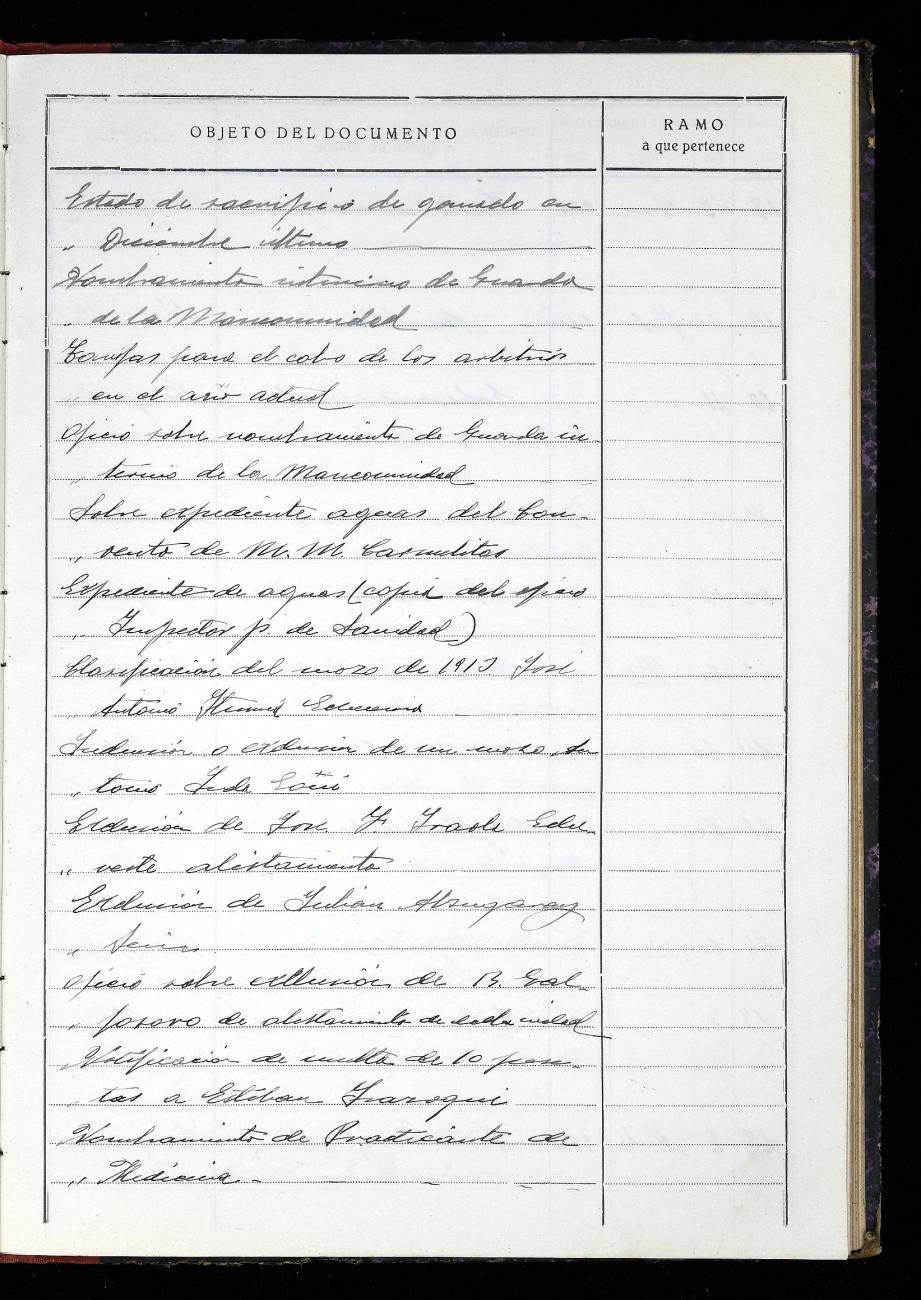 OBJETO DEL DOCUMENTO
RAMO
a que pertenece
Estado de sacrificio de ganado en
„ Diciembre último
Nombramiento interino de Guarda
„ de la Mancomunidad
Tarifas para el cobo de los arbitrios
„ en el año actual
Oficio sobre nombramiento de Guarda in-
„ terino de la Mancomunidad
Sobre expediente aguas del Con-
„ vento de M. M. Carmelitas
Expediente de aguas (copia del oficio
„ Inspector p. de Sanidad)
Clasificación del mozo de 1913 José
„ Antonio
Inclusión o exclusión de un mozo An
„ tonio
Exclusión de José Eche
„ veste alistamiento
Exclusión de Julián
„
Oficio sobre exclusión de B. Gal-
„ de alistamiento de esta ciudad
Notificación de multa de 10 pese-
„ tas a Estéban
Nombramiento de Practicante de
„ Medicina